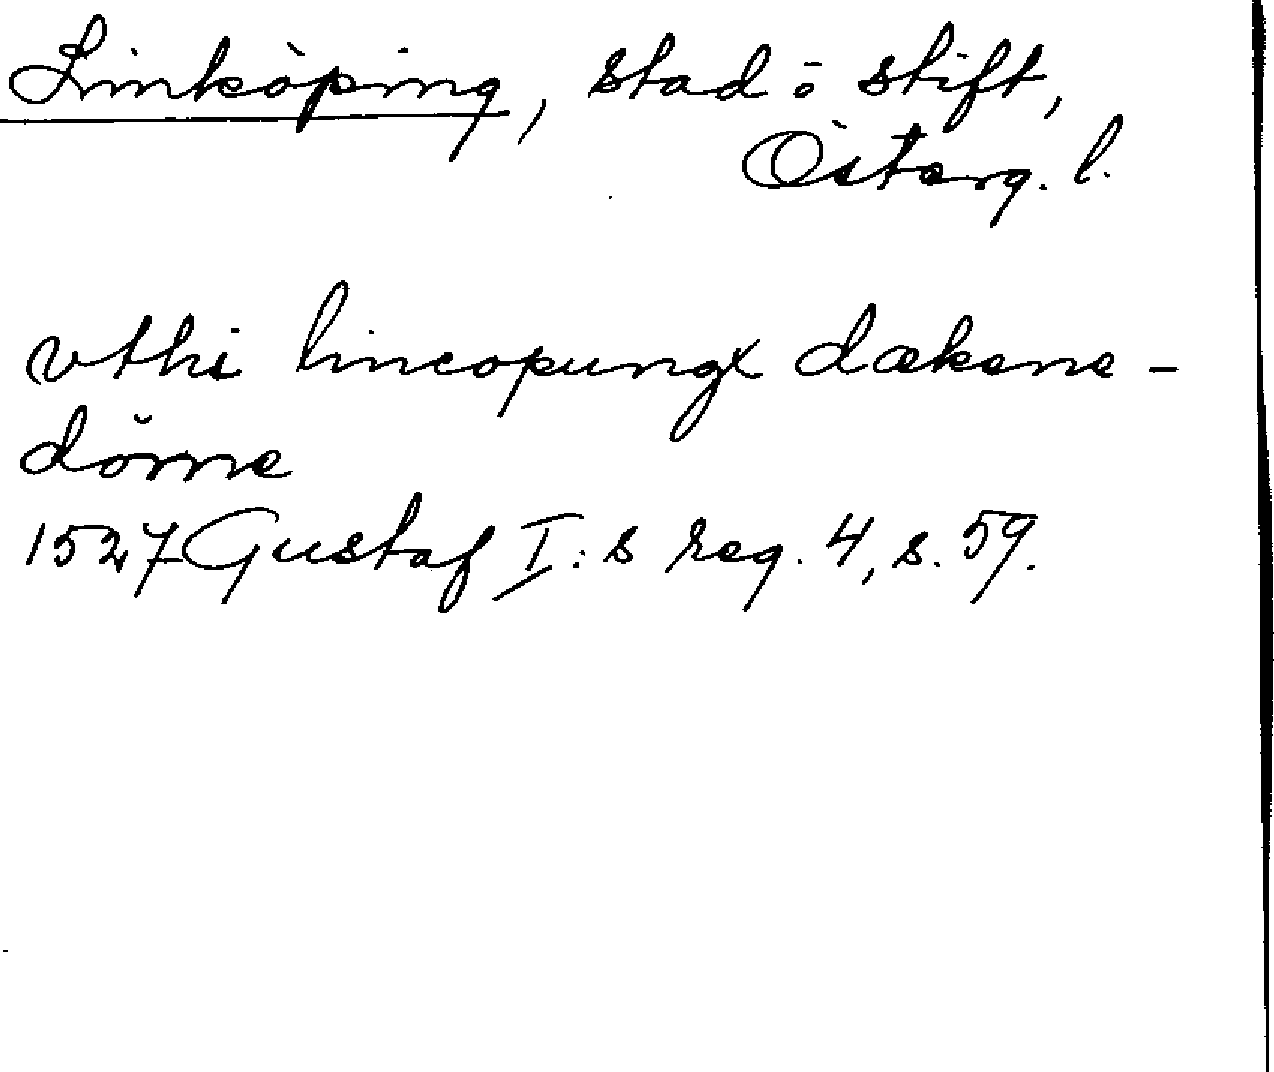 Linköping, stad o stift,
Österg. l.
vthi lincopungx dækene-
döme
1527 Gustaf I:s reg. 4, s. 59.